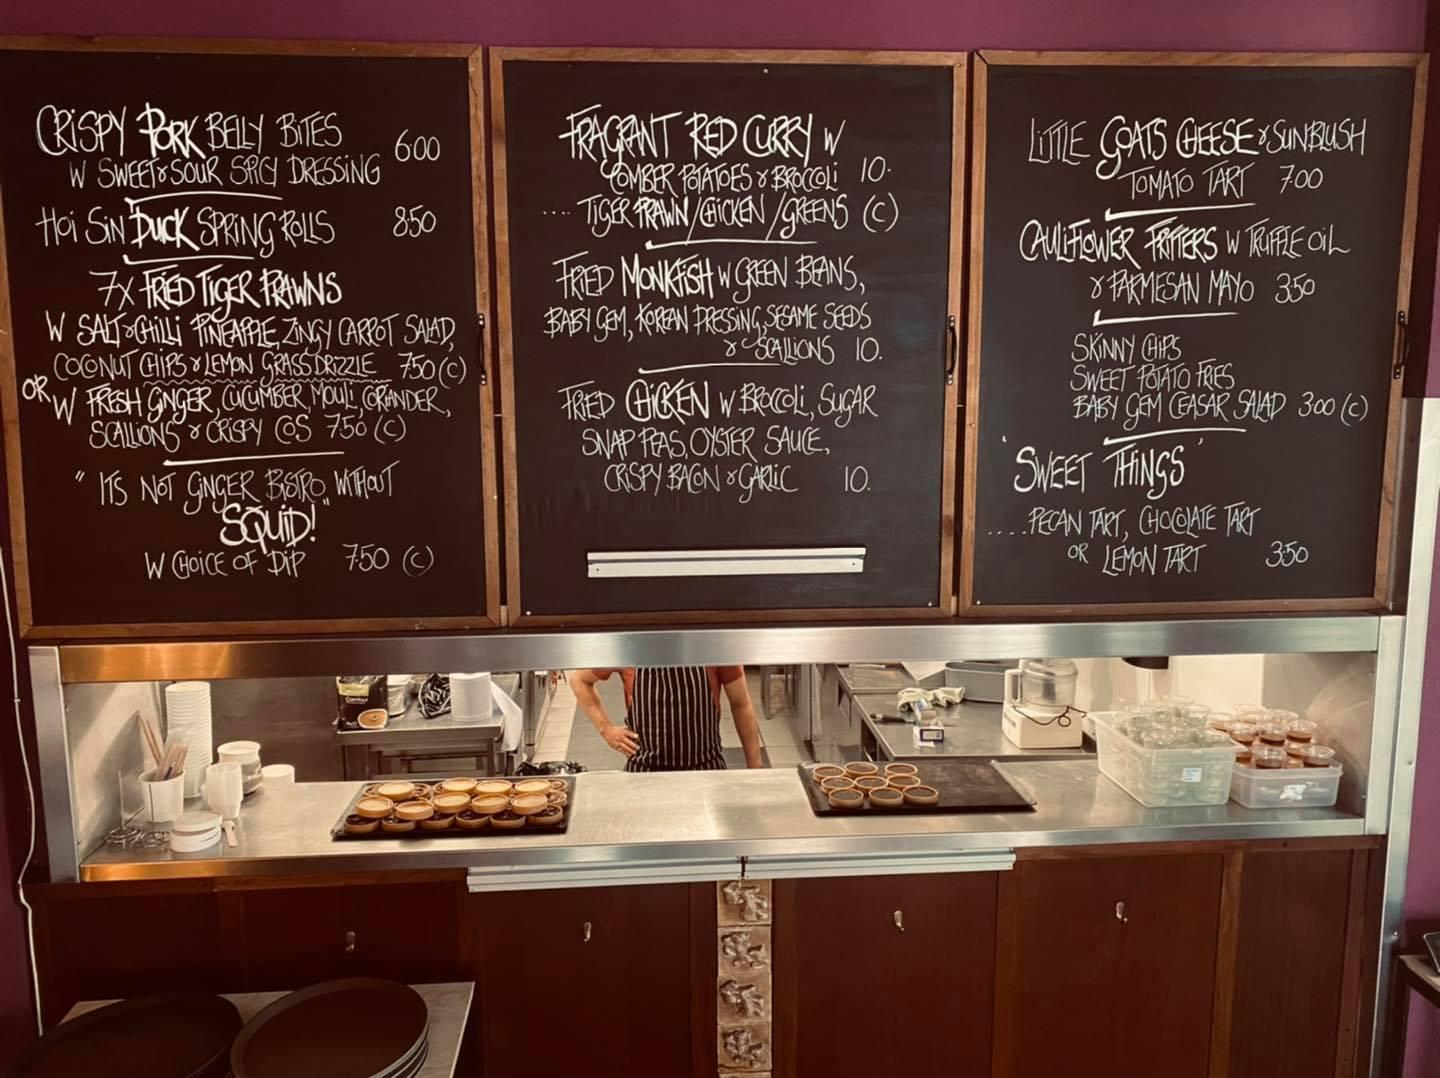 CRISPY PORK BELLY BITES 6.00
W SWEET & SOUR SPICY DRESSING
HOI SIN DUCK SPRING ROLLS 8.50
7X FRIED TIGER PRAWNS
W SALT & CHILLI PINEAPPLE, ZINGY CARROT SALAD,
COCONUT CHIPS & LEMON GRASS DRIZZLE 7.50 (C)
OR W FRESH GINGER, CUCUMBER, MOULI, CORIANDER,
SCALLIONS & CRISPY COS 7.50 (C)
"ITS NOT GINGER BISTRO, WITHOUT
SQUID!"
W CHOICE OF DIP 7.50 (C)
FRAGRANT RED CURRY W
COMBER POTATOES & BROCCOLI 10.
.... TIGER PRAWN/CHICKEN/GREENS (C)
FRIED MONKFISH W GREEN BEANS,
BABY GEM, KOREAN DRESSING, SESAME SEEDS
& SCALLIONS 10.
FRIED CHICKEN W BROCCOLI, SUGAR
SNAP PEAS, OYSTER SAUCE,
CRISPY BACON & GARLIC 10.
LITTLE GOATS CHEESE & SUNBLUSH
TOMATO TART 7.00
CAULIFLOWER FRITTERS W TRUFFLE OIL
& PARMESAN MAYO 3.50
SKINNY CHIPS
SWEET POTATO FRIES
BABY GEM CEASAR SALAD 3.00 (C)
'SWEET THINGS'
.....PECAN TART, CHOCOLATE TART
OR LEMON TART 3.50